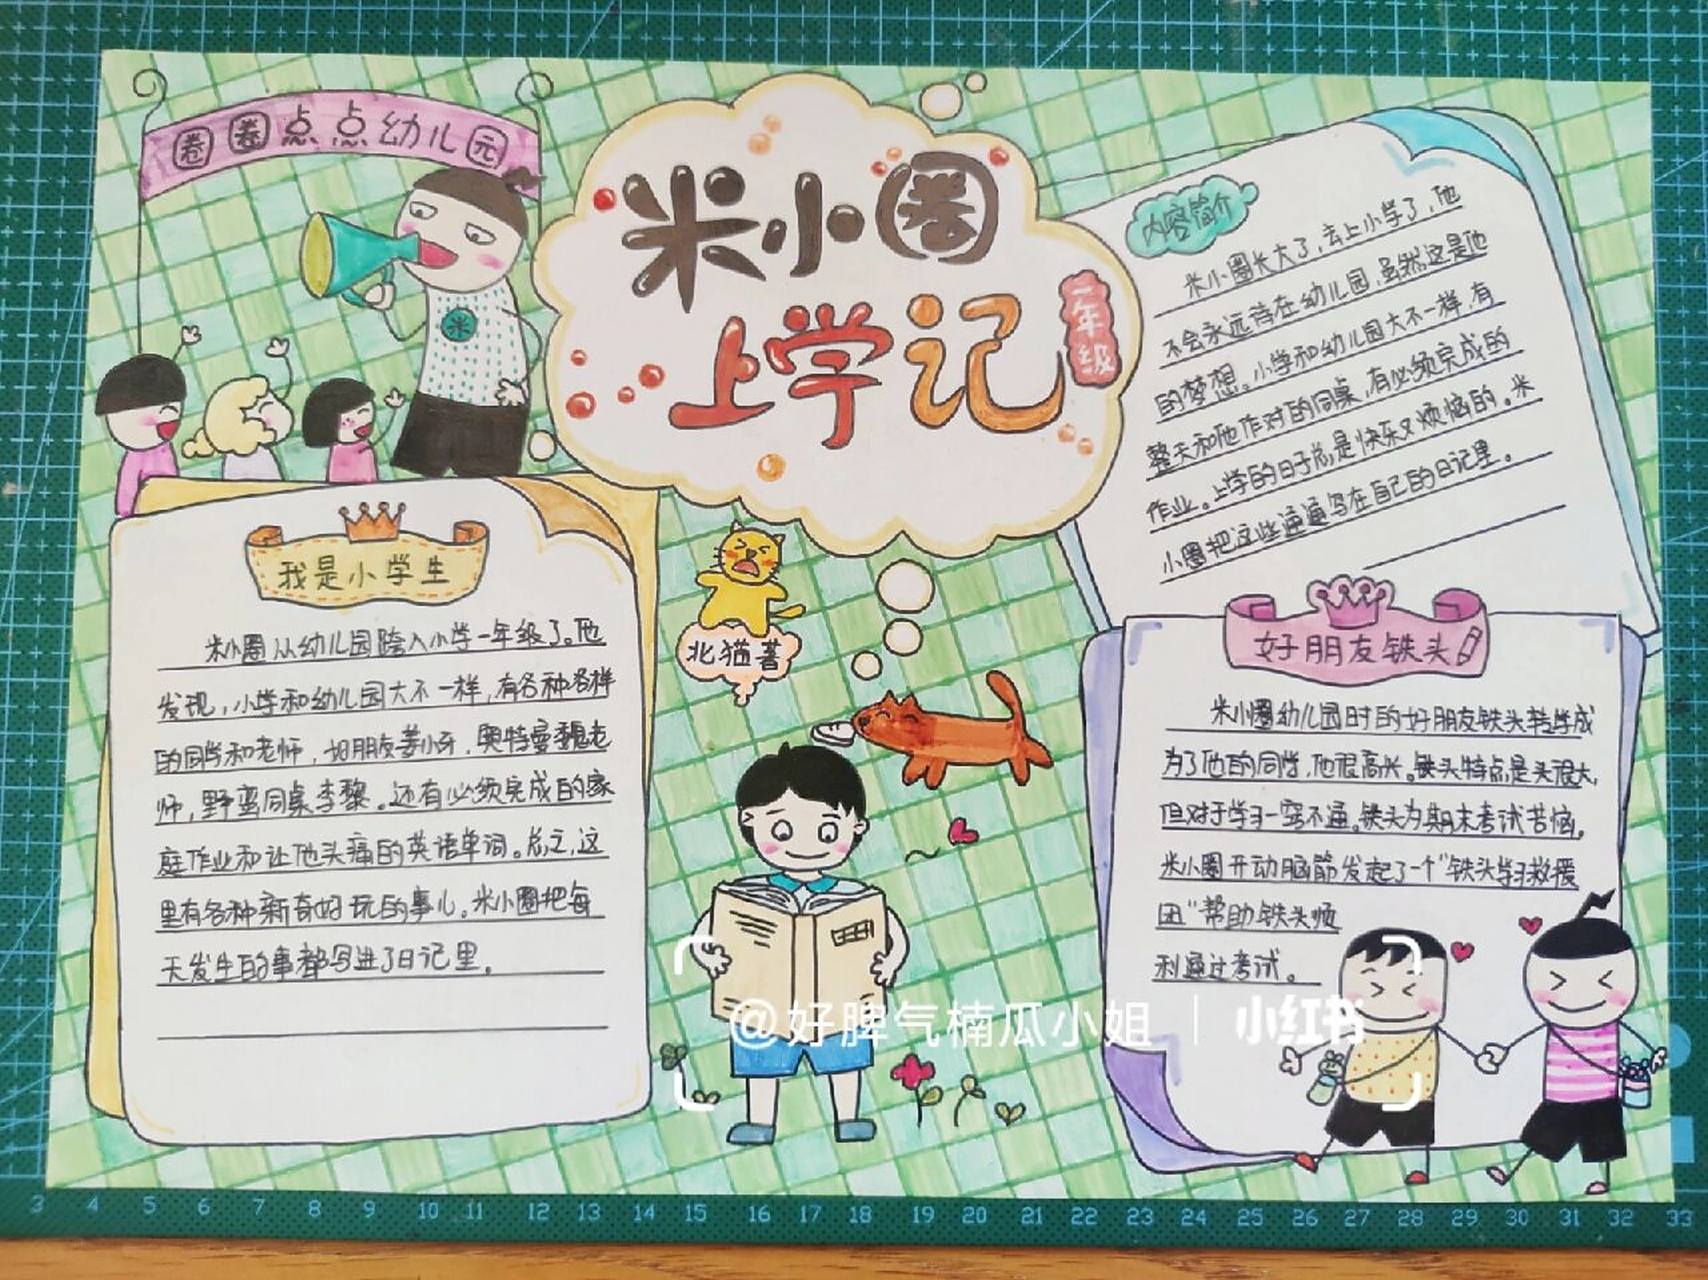 圈圈点点幼儿园
米
米小圈
上学记
一年级
北猫著
内容简介
米小圈长大了，去上小学了，他
不会永远待在幼儿园，虽然这是他
的梦想。小学和幼儿园大不一样，有
整天和他作对的同桌，有必须完成的
作业。上学的日子总是快乐又烦恼的。米
小圈把这些通通写在自己的日记里。
我是小学生
米小圈从幼儿园跨入小学一年级了。他
发现，小学和幼儿园大不一样，有各种各样
的同学和老师，好朋友姜小牙，奥特曼魏老
师，野蛮同桌李黎。还有必须完成的家
庭作业和让他头痛的英语单词。总之，这
里有各种新奇好玩的事儿。米小圈把每
天发生的事都写进了日记里。
好朋友铁头
米小圈幼儿园时的好朋友铁头转学成
为了他的同学，他很高兴。铁头特点是头很大，
但对于学习一窍不通。铁头为期末考试苦恼。
米小圈开动脑筋发起了一个“铁头学习救援
团”帮助铁头顺
利通过考试。
@好脾气楠瓜小姐 | 小红书
3 4 5 6 7 8 9 10 11 12 13 14 15 16 17 18 19 20 21 22 23 24 25 26 27 28 29 30 31 32 33